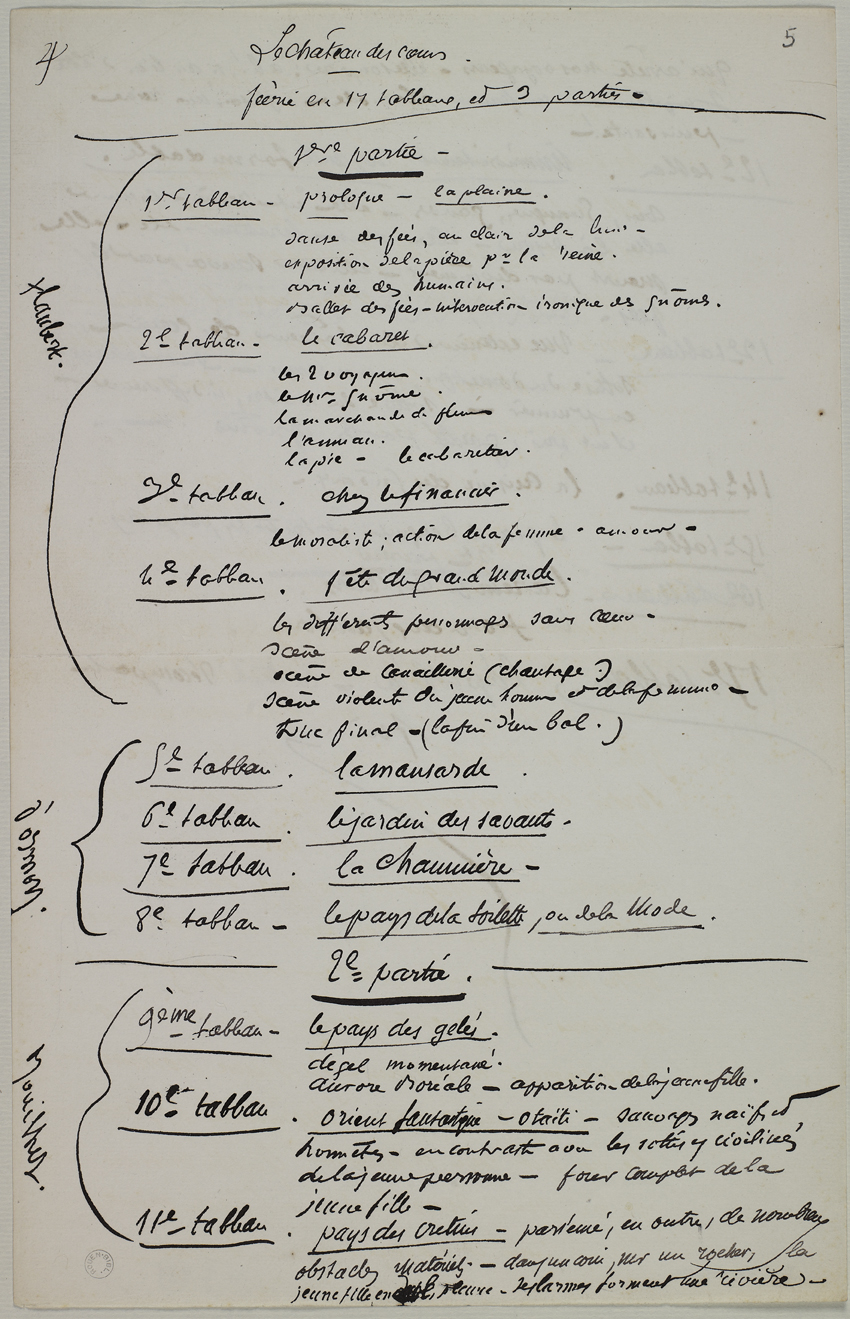 5
Le château des cœurs.
féerie en 17 tableaux, et 3 parties -
1ère partie -
1er tableau - prologue - la plaine.
danse des fées, au clair de la lune -
exposition de la pièce pr la reine.
arrivée des humains.
ballet des fées - intervention ironique des gnômes.
Flaubert.
2e tableau - le cabaret.
les 2 voyageurs.
le gnôme.
la marchande de fleurs
l'anneau.
la pie - le cabaretier.
3e tableau. chez le financier.
le moraliste ; action de la femme - amour -
4e tableau. fête du grand monde.
les différents personnages sans cœur -
scène d'amour -
scène de canaillerie (chantage ?)
scène violente du jeune homme et de la femme -
truc final - (la fin d'un bal.)
5e tableau. la mansarde.
6e tableau. le jardin des savants.
7e tableau. la chaumière -
8e tableau - le pays de la toilette, ou de la Mode.
2e partie.
9ème tableau - le pays des gelés.
dégel momentané.
aurore boréale - apparition de la jeune fille.
10e tableau. orient fantastique - otaïti - sauvages naïfs et
honnêtes - en contraste avec les sottises civilisées
de la jeune personne - four complet de la
jeune fille -
11e tableau. pays des crétins - parsemé, en outre, de nombreux
obstacles matériels - dans un coin, sur un rocher, la
jeune fille pleure - ses larmes forment une rivière -